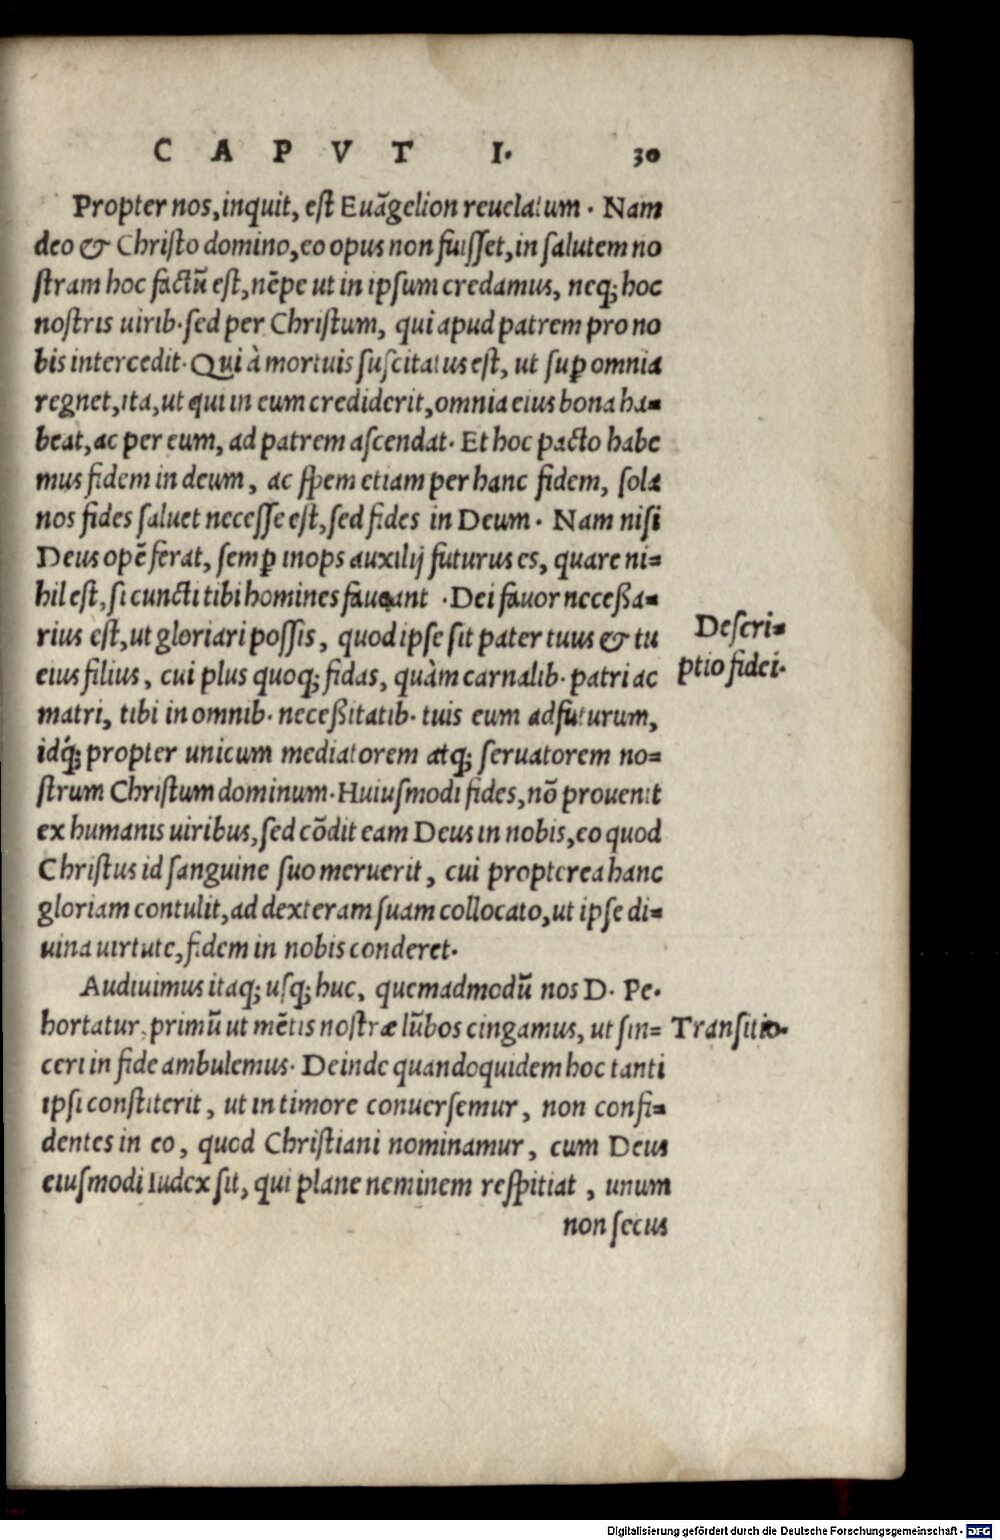 CAPVT I. 30
Propter nos, inquit, est Euãgelion reuelatum. Nam
deo & Christo domino, eo opus non fuisset, in salutem no
stram hoc factũ est, nẽpe ut in ipsum credamus, neq; hoc
nostris uirib. sed per Christum, qui apud patrem pro no
bis intercedit. Qui à mortuis suscitatus est, ut sup̱ omnia
regnet, ita, ut qui in eum crediderit, omnia eius bona ha=
beat, ac per eum, ad patrem ascendat. Et hoc pacto habe
mus fidem in deum, ac spem etiam per hanc fidem, sola
nos fides saluet necesse est, sed fides in Deum. Nam nisi
Deus opẽ ferat, semp̱ inops auxilij futurus es, quare ni=
hil est, si cuncti tibi homines faueant. Dei fauor neceßa=
rius est, ut gloriari possis, quod ipse sit pater tuus & tu
Descri=
eius filius, cui plus quoq; fidas, quàm carnalib. patri ac
ptio fidei.
matri, tibi in omnib. neceßitatib. tuis eum adfuturum,
idq́; propter unicum mediatorem atq; seruatorem no=
strum Christum dominum. Huiusmodi fides, nõ prouenit
ex humanis uiribus, sed cõdit eam Deus in nobis, eo quod
Christus id sanguine suo meruerit, cui propterea hanc
gloriam contulit, ad dexteram suam collocato, ut ipse di=
uina uirtute, fidem in nobis conderet.
Audiuimus itaq; usq; huc, quemadmodũ nos D. Pe.
hortatur, primũ ut mẽtis nostræ lũbos cingamus, ut sin=
Transitio.
ceri in fide ambulemus. Deinde quandoquidem hoc tanti
ipsi constiterit, ut in timore conuersemur, non confi=
dentes in eo, quod Christiani nominamur, cum Deus
eiusmodi Iudex sit, qui plane neminem respitiat, unum
non secus
Digitalisierung gefördert durch die Deutsche Forschungsgemeinschaft - DFG